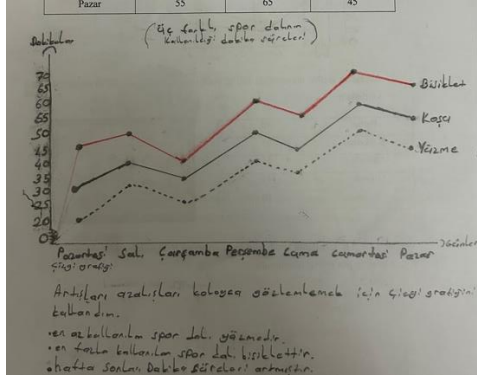 Pazar 55 65 45
(Üç farklı spor dalının
kullanıldığı dakika süreleri)
Dakikalar
70
65
60
55
50
45
40
35
30
25
20
0
Bisiklet
Koşu
Yüzme
Pazartesi Salı Çarşamba Perşembe Cuma Cumartesi Pazar
Günler
Çizgi grafiği
Artışları azalışları kolayca gözlemlemek için Çizgi grafiğini
kullandım.
• en az kullanılan spor dalı yüzmedir.
• en fazla kullanılan spor dalı bisiklettir.
• hafta sonları Dakika Süreleri artmıştır.